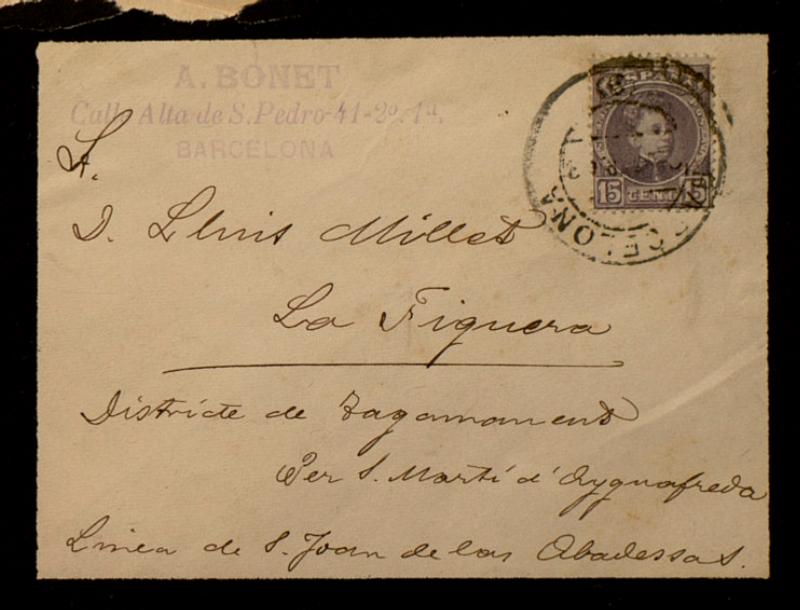 A. BONET
Calle Alta de S. Pedro-41-2º.1ª.
BARCELONA
ESPAÑA
15 CENT 15
BARCELONA
S.
D. Lluis Millet
La Figuera
Districte de Tagamanent
Per S. Martí d'Ayguafreda
Linea de S. Joan de las Abadessas.